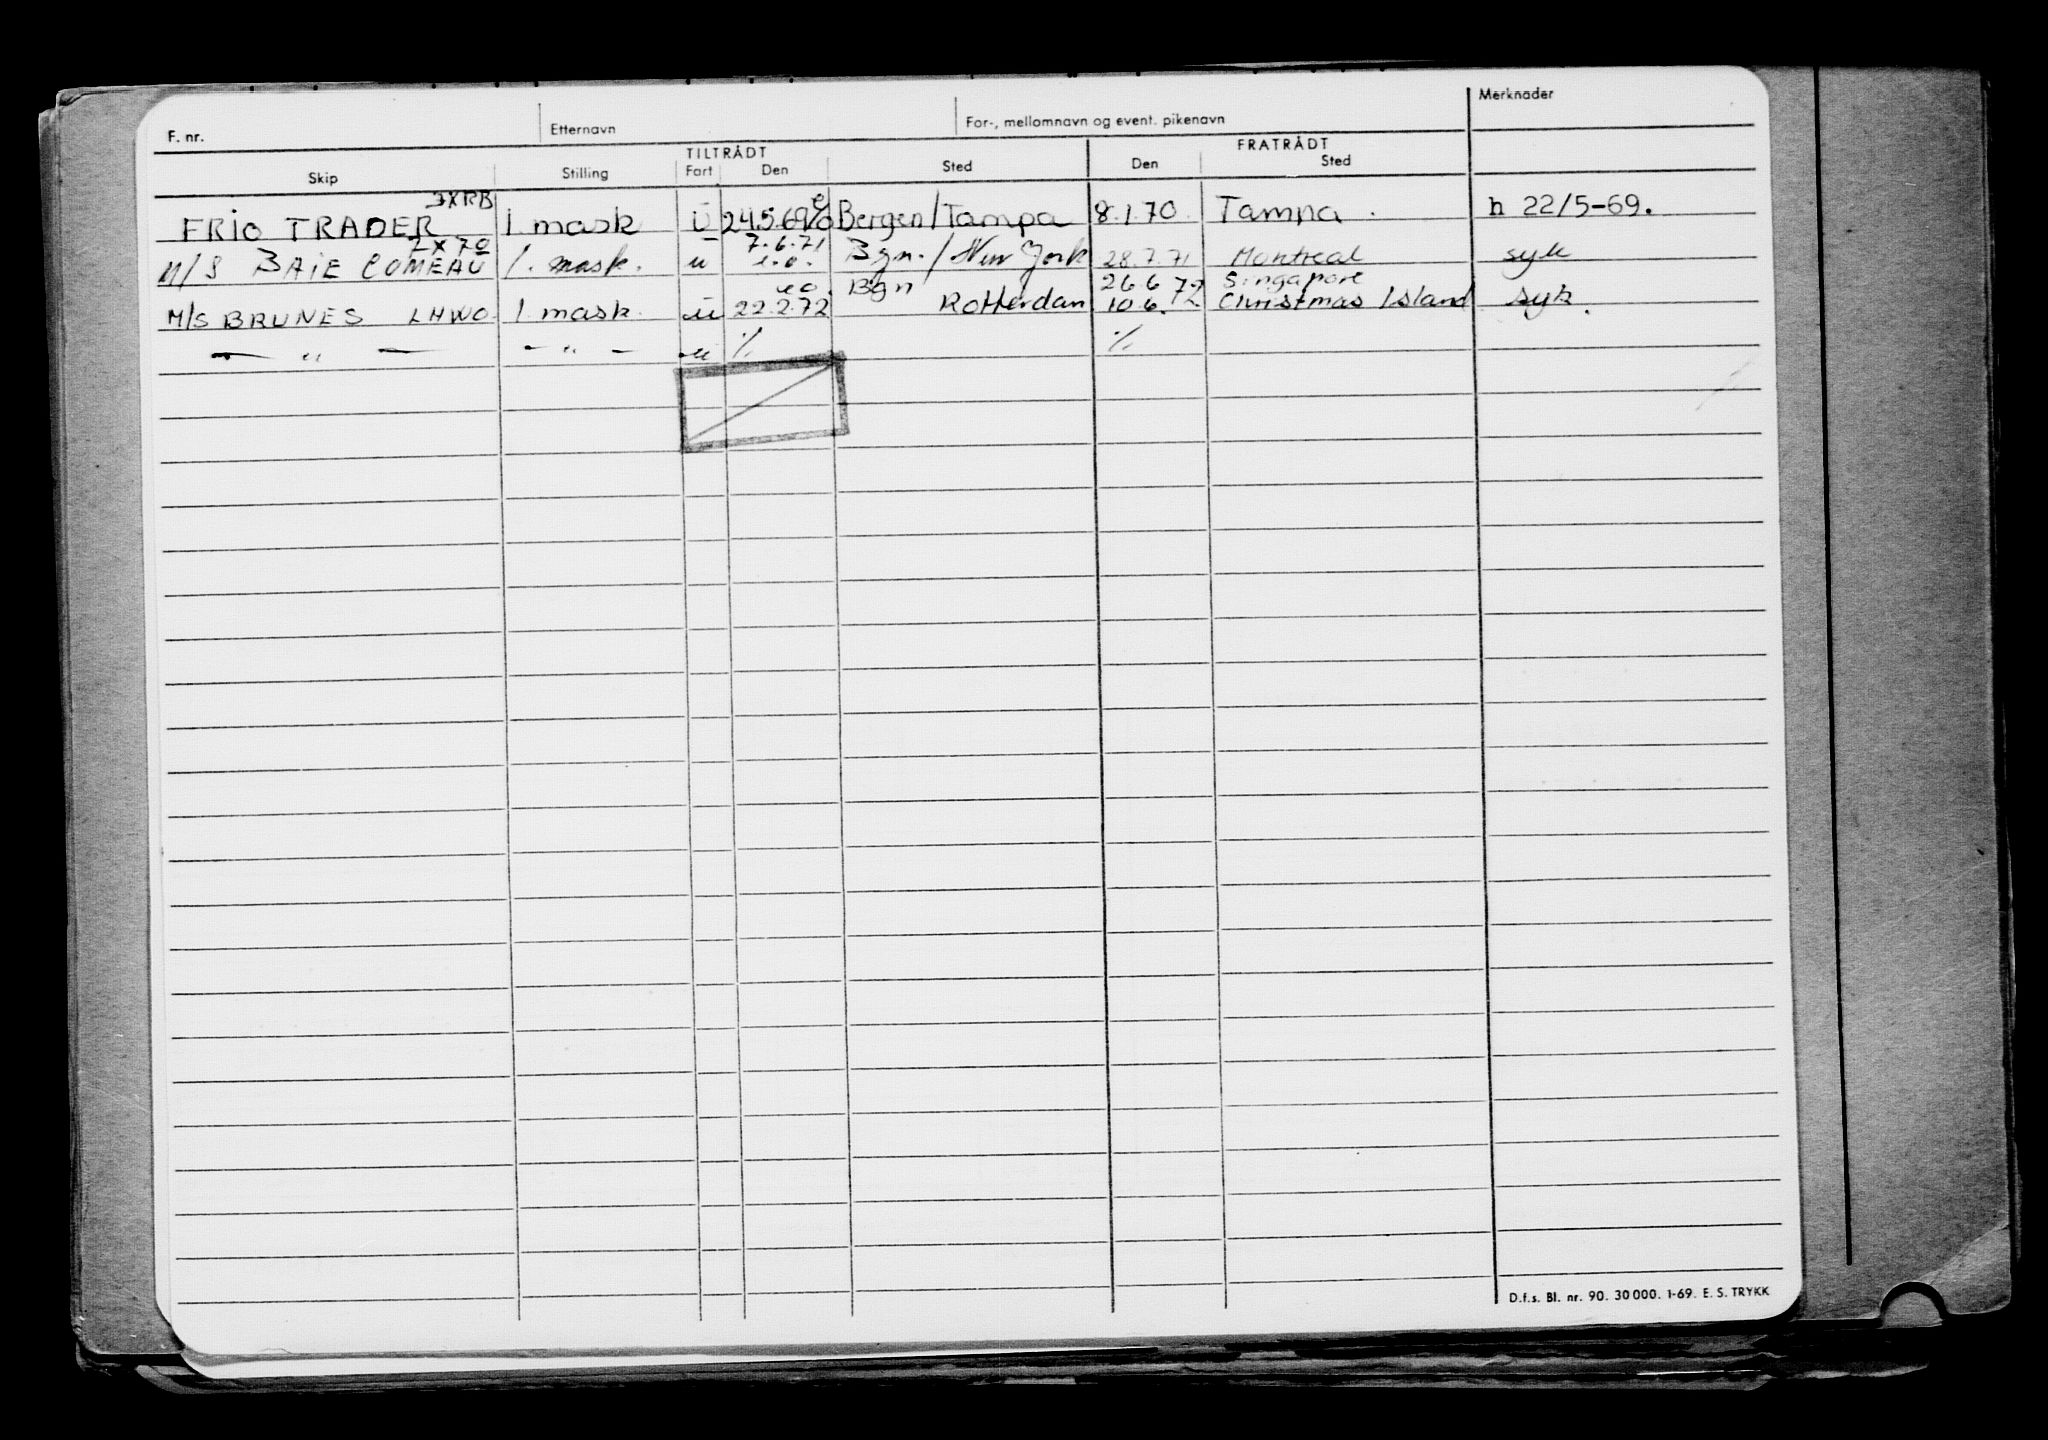 F. nr. Etternavn For-, mellomnavn og event. pikenavn Merknader
TILTRÅDT FRATRÅDT
Skip Stilling Fart Den Sted Den Sted
JXRB
FRIO TRADER 1. mask Ü 24.5.69 e/o Bergen/Tampa 8.1.70 Tampa. h 22/5-69.
LX 70 7.6.71
M/S BAIE COMEAU 1. mask. u e.o. Bgn./New York 28.7.71 Montreal syk
eo. Bgn 26.6 72 Singapore
M/S BRUNES LHWO 1 mask. u 22.2.72 Rotterdam 10.6. Christmas Island syk.
— " — - " - u % %
D.f.s. Bl. nr. 90. 30 000. 1-69. E. S. TRYKK